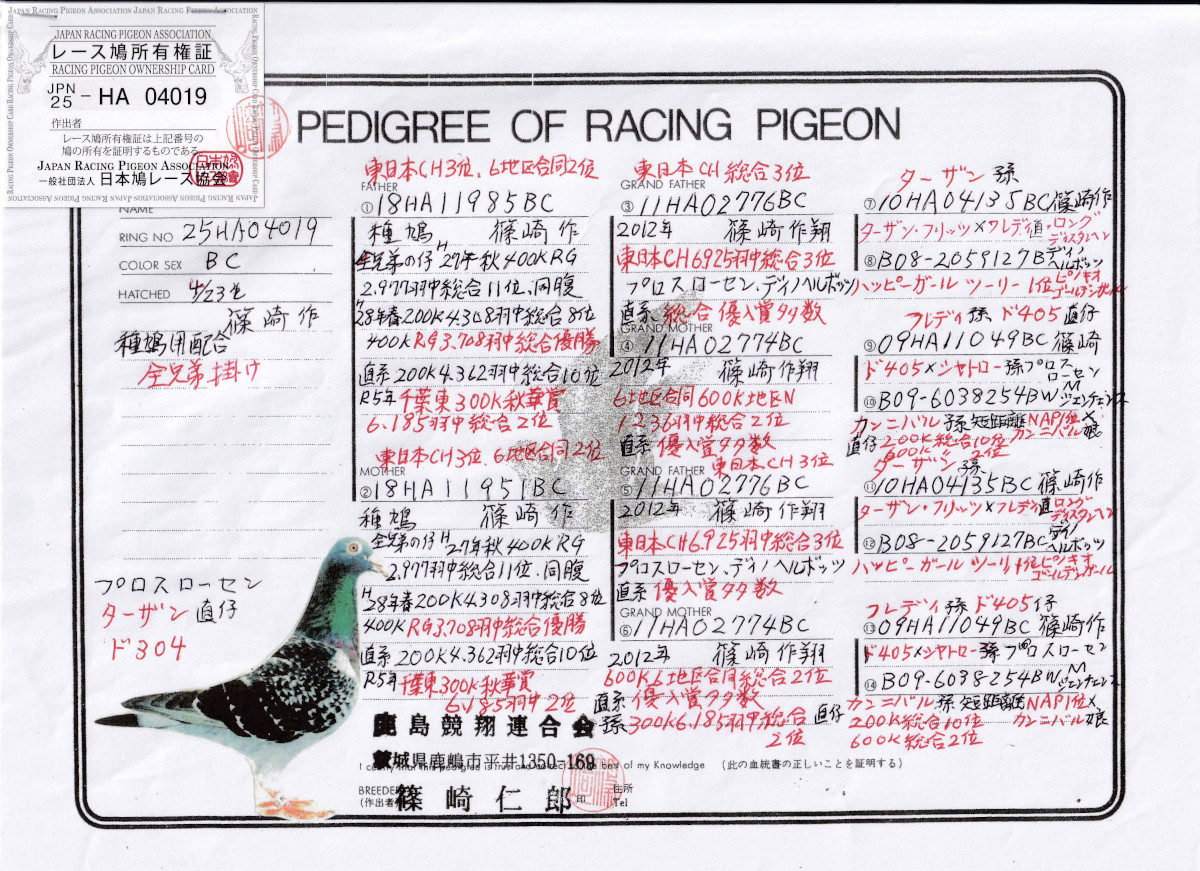 JAPAN RACING PIGEON ASSOCIATION
レース鳩所有権証
RACING PIGEON OWNERSHIP CARD
JPN 25 - HA 04019
作出者
レース鳩所有権証は上記番号の
鳩の所有を証明するものである
JAPAN RACING PIGEON ASSOCIATION
一般社団法人 日本鳩レース協会
PEDIGREE OF RACING PIGEON
NAME
RING NO 25HA04019
COLOR SEX BC
HATCHED 4/23生
篠崎 作
種鳩用配合
全兄弟掛け
プロスローセン
ターザン 直仔
ド304
東日本CH3位、6地区合同2位
FATHER
① 18HA11985BC
種鳩 篠崎 作
全兄弟の仔 H27年秋400KRG
2.977羽中総合11位、同腹
H28年春200K4.308羽中総合8位
400KRG3.708羽中総合優勝
直系200K4.362羽中総合10位
R5年千葉東300K秋華賞
6.185羽中総合2位
東日本CH3位、6地区合同2位
MOTHER
② 18HA11951BC
種鳩 篠崎 作
全兄弟の仔 H27年秋400KRG
2.977羽中総合11位、同腹
H28年春200K4.308羽中総合8位
400KRG3.708羽中総合優勝
直系200K4.362羽中総合10位
R5年千葉東300K秋華賞
6.185羽中2位
東日本CH総合3位
GRAND FATHER
③ 11HA02776BC
2012年 篠崎作翔
東日本CH6925羽中総合3位
プロスローセン、ディノヘルボッツ
直系 総合優入賞多数
GRAND MOTHER
④ 11HA02774BC
2012年 篠崎作翔
6地区合同600K地区N
1236羽中総合2位
直系 優入賞多数
東日本CH3位
GRAND FATHER
⑤ 11HA02776BC
2012年 篠崎作翔
東日本CH6925羽中総合3位
プロスローセン、ディノヘルボッツ
直系 優入賞多数
GRAND MOTHER
⑥ 11HA02774BC
2012年 篠崎作翔
600K6地区合同総合2位
直系 優入賞多数
孫300K6.185羽中総合2位 直仔
ターザン 孫
⑦ 10HA04135BC篠崎作
ターザン・フリッツ×フレディ直・ロングディスタンヘン
⑧ B08-2059127B ディノヘルボッツ
ハッピーガール ツーリー1位
フレディ孫 ド405直仔
⑨ 09HA11049BC 篠崎
ド405×シャトロー孫プロスローセン
⑩ B09-6038254BW
カンニバル孫短距離NAP1位×カンニバル娘
直仔200K総合10位
600K 2位
ターザン孫
⑪ 10HA04135BC 篠崎作
ターザン・フリッツ×フレディ直ロングディスタンヘン
⑫ B08-2059127BC ディノヘルボッツ
ハッピーガール ツーリー1位ピノキオゴールデンガール
フレディ孫 ド405仔
⑬ 09HA11049BC 篠崎作
ド405×シャトロー孫プロスローセン
⑭ B09-6038254BW
カンニバル孫 短距離NAP1位×カンニバル娘
200K総合10位
600K総合2位
鹿島競翔連合会
茨城県鹿嶋市平井1350-169
I certify that this pedigree is true and correct to the best of my Knowledge (この血統書の正しいことを証明する)
BREEDER
(作出者) 篠崎仁郎 印
住所
Tel